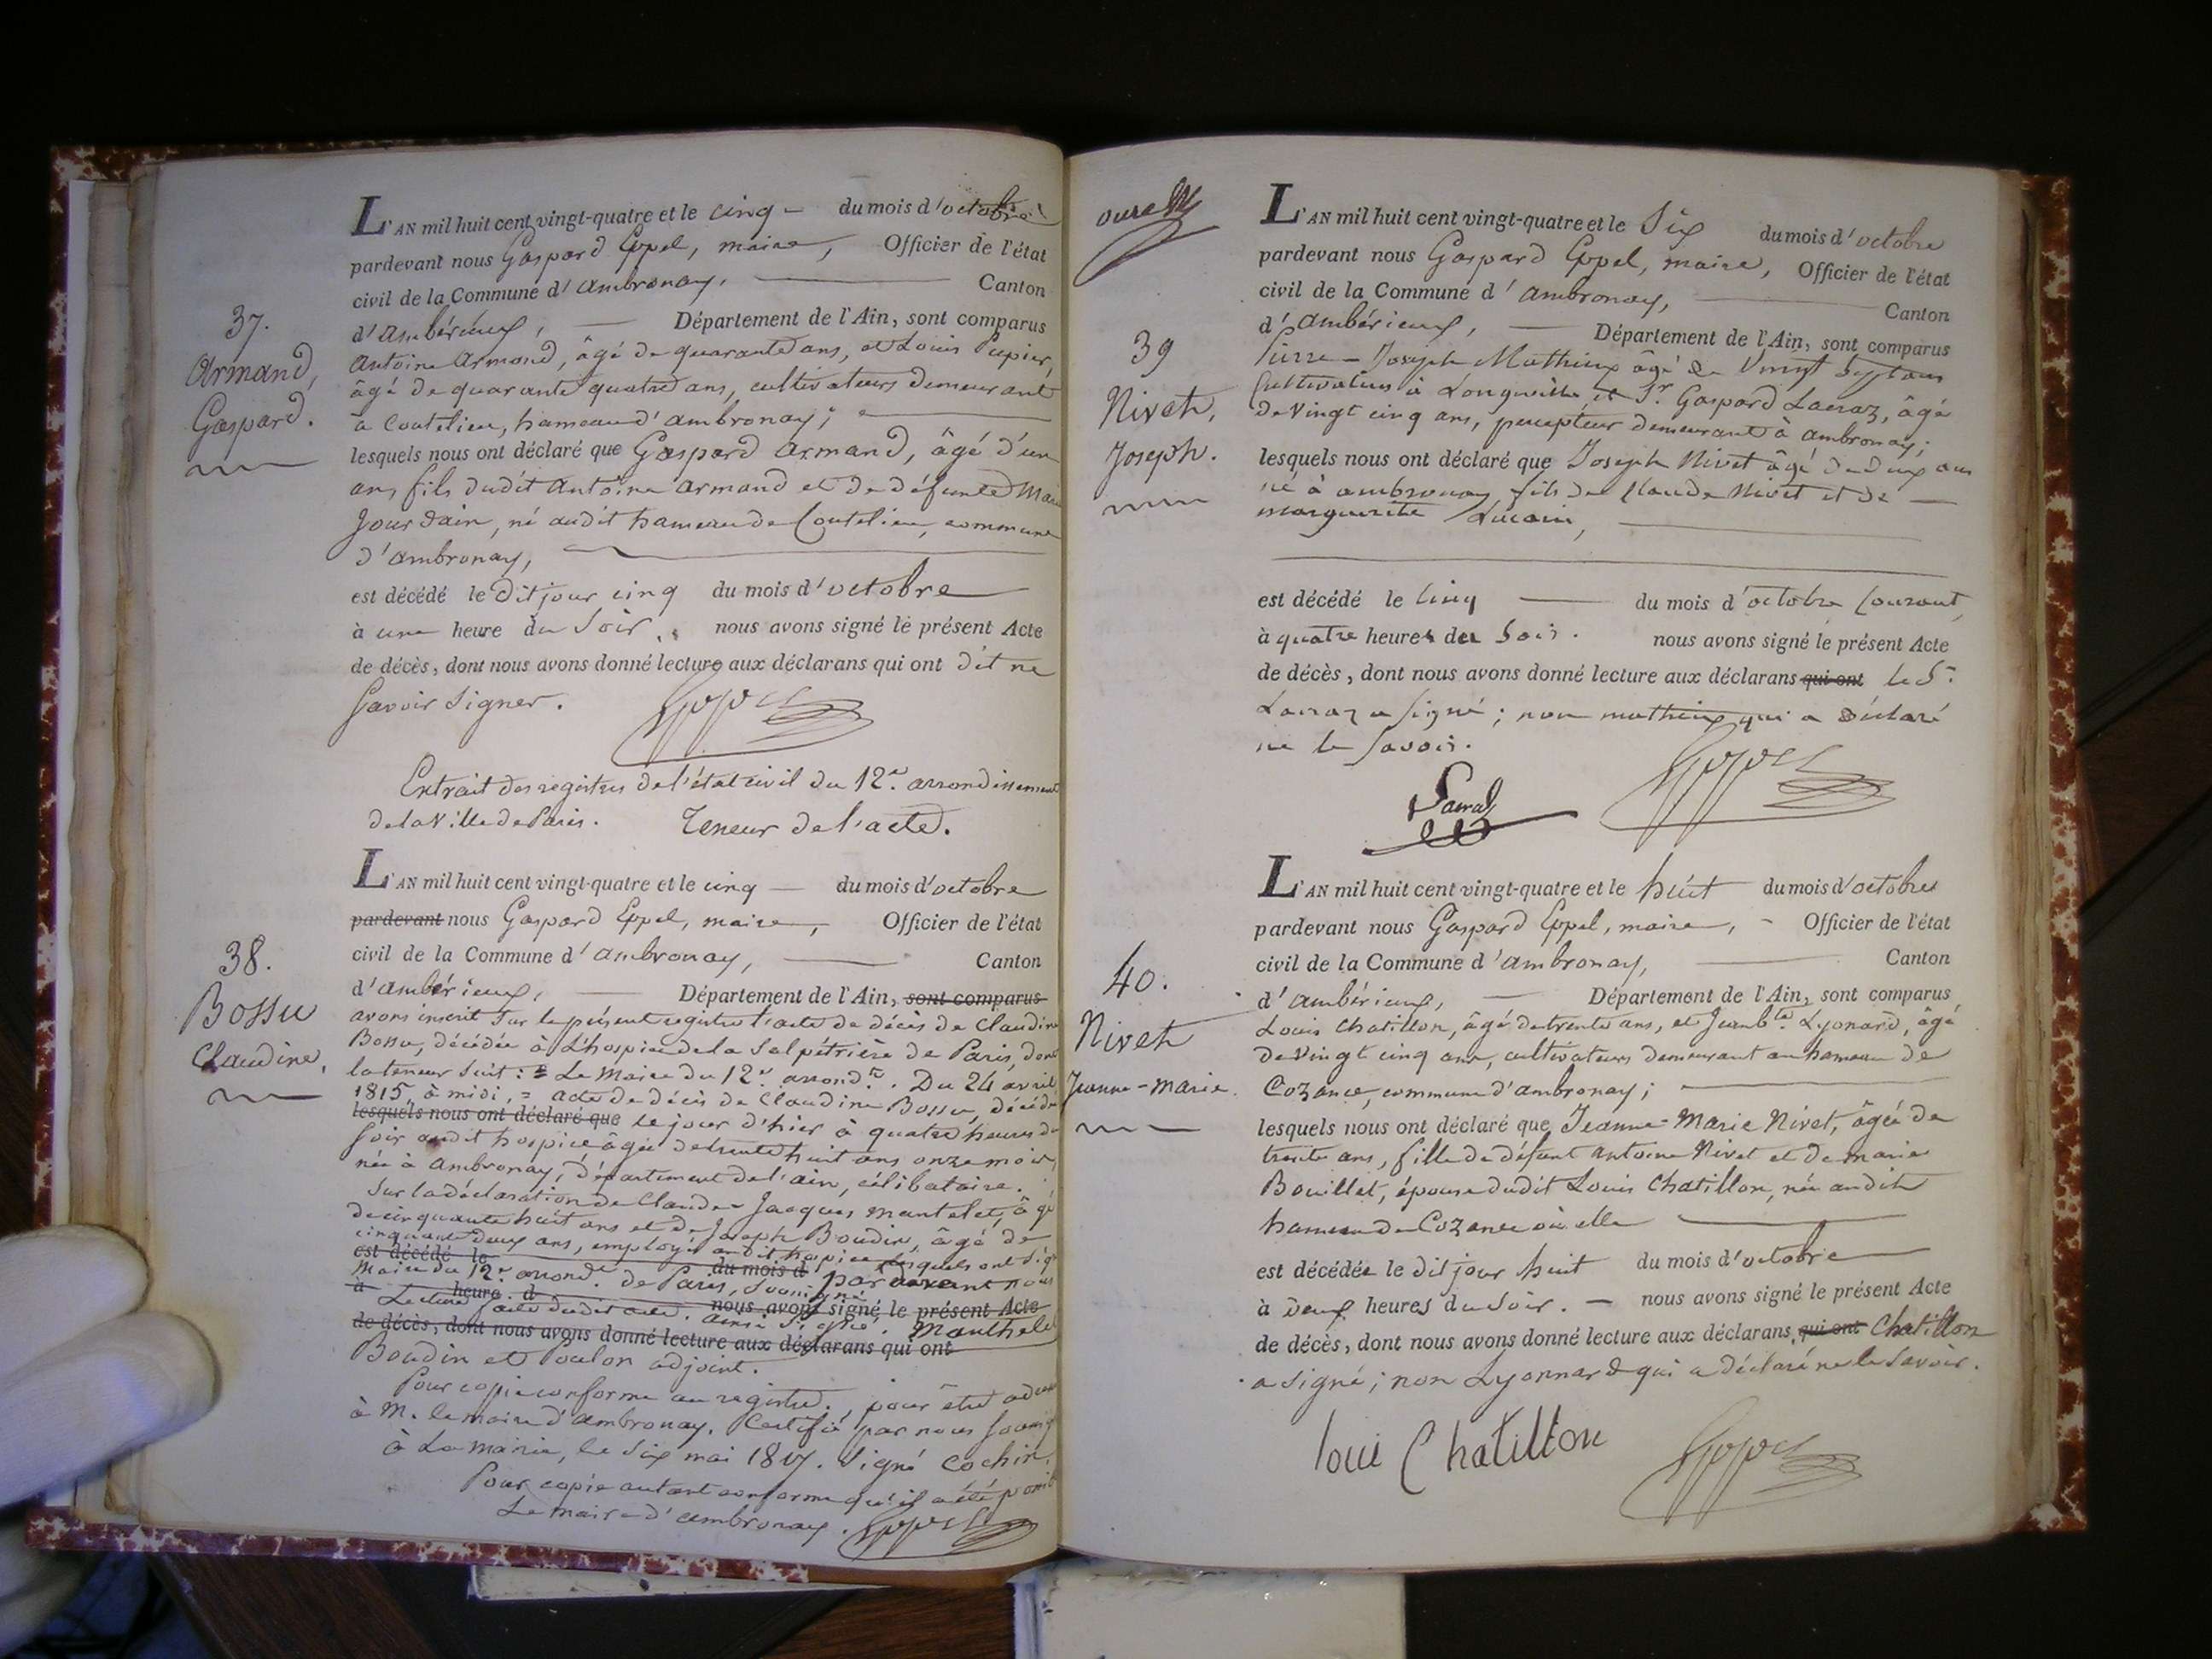 L'AN mil huit cent vingt-quatre et le cinq — du mois d'octobre
pardevant nous Gaspard Eppel, maire, Officier de l'état
civil de la Commune d'ambronay, — Canton
d'ambérieux, — Département de l'Ain, sont comparus
37.
Armand,
Gaspard.
antoine armand, âgé de quarante ans, et Louis Pupier,
âgé de quarante quatre ans, cultivateurs demeurant
à Coutelieu, hameau d'ambronay;
lesquels nous ont déclaré que Gaspard armand, âgé d'un
an, fils dudit antoine armand et de défunte
Jourdain, né audit hameau de Coutelieu, commune
d'ambronay,
est décédé le dit jour cinq du mois d'octobre
à une heure du soir, nous avons signé le présent Acte
de décès, dont nous avons donné lecture aux déclarans qui ont dit ne
savoir signer.
Extrait des registres de l'état civil du 12e. arrondissement
de la Ville de Paris. Teneur de l'acte.
L'AN mil huit cent vingt-quatre et le cinq — du mois d'octobre
pardevant nous Gaspard Eppel, maire, Officier de l'état
civil de la Commune d'ambronay, — Canton
d'ambérieux, — Département de l'Ain, sont comparus
38.
Bossu
Claudine,
avons inscrit sur le présent registre l'acte de décès de Claudine
Bossu, décédée à L'hospice de la Salpétrière de Paris, dont
la teneur suit: = Le Maire du 12e. arrond.t. Du 24 avril
1815, à midi, = acte de décès de Claudine Bossu, décédée
lesquels nous ont déclaré que le jour d'hier à quatre heures du
soir audit hospice âgée de trente huit ans onze mois,
née à ambronay, département de l'ain, célibataire.
Sur la déclaration de Claude Jacques mantelet, âgé
de cinquante huit ans et de Joseph Boudin, âgé de
cinquante deux ans, employés audit hospice lesquels ont
est décédé le du mois d
Maire du 12e. arrond.t de Paris, par devant nous
à heure d nous avons signé le présent Acte
Lecture faite dudit acte. ainsi signé. Manthelet
de décès, dont nous avons donné lecture aux déclarans qui ont
Boudin et Poulon adjoint.
Pour copie conforme au registre, pour être
à M. le maire d'ambronay. Certifié par nous
à La mairie, le six mai 18 . Signé Cochin.
Pour copie autant conforme qu'il a été
Le maire d'ambronay.
L'AN mil huit cent vingt-quatre et le Six du mois d'octobre
pardevant nous Gaspard Eppel, maire, Officier de l'état
civil de la Commune d'ambronay, — Canton
d'ambérieux, — Département de l'Ain, sont comparus
39
Nivet,
Joseph.
Pierre-Joseph Mathieux âgé de Vingt Sept ans
Cultivateur à Longeville, et Sr. Gaspard Lacraz, âgé
de vingt cinq ans, percepteur demeurant à ambronay;
lesquels nous ont déclaré que Joseph Nivet âgé de deux ans
né à ambronay fils de Claude Nivet et de —
marguerite
est décédé le Cinq — du mois d'octobre Courant,
à quatre heures du Soir. nous avons signé le présent Acte
de décès, dont nous avons donné lecture aux déclarans qui ont le Sr.
Lacraz a signé; non mathieux qui a déclaré
ne le savoir.
Lacraz
L'AN mil huit cent vingt-quatre et le huit du mois d'octobre
pardevant nous Gaspard Eppel, maire, - Officier de l'état
civil de la Commune d'ambronay, — Canton
d'ambérieux, — Département de l'Ain, sont comparus
40.
Nivet
Jeanne-Marie.
Louis Chatillon, âgé de trente ans, et Jean bte. Lyonard, âgé
de vingt cinq ans, cultivateurs demeurant au hameau de
Cozance, commune d'ambronay;
lesquels nous ont déclaré que Jeanne-Marie Nivet, âgée de
trente ans, fille de défunt antoine Nivet et de marie
Bouillet, épouse dudit Louis Chatillon, née audit
hameau de Cozance où elle
est décédée le dit jour huit du mois d'octobre
à deux heures du soir. — nous avons signé le présent Acte
de décès, dont nous avons donné lecture aux déclarans, qui ont Chatillon
a signé; non Lyonnard qui a déclaré ne le savoir.
loui Chatillon